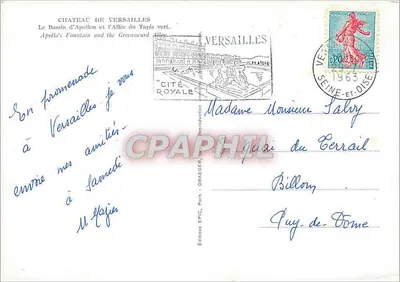 CHATEAU DE VERSAILLES
Le Bassin d'Apollon et l'Allée du Tapis vert.
Apollo's Fountain and the Greensward Alley.
VERSAILLES
CITÉ
ROYALE
1963
SEINE-ET-OISE
En promenade
à Versailles je vous
envoie mes amitiés
à Samedi
Madame Monsieur
quai du Terrail
Billom
Puy-de-Dome
Editions EPIC, Paris - DRAEGER,
CPAPHIL